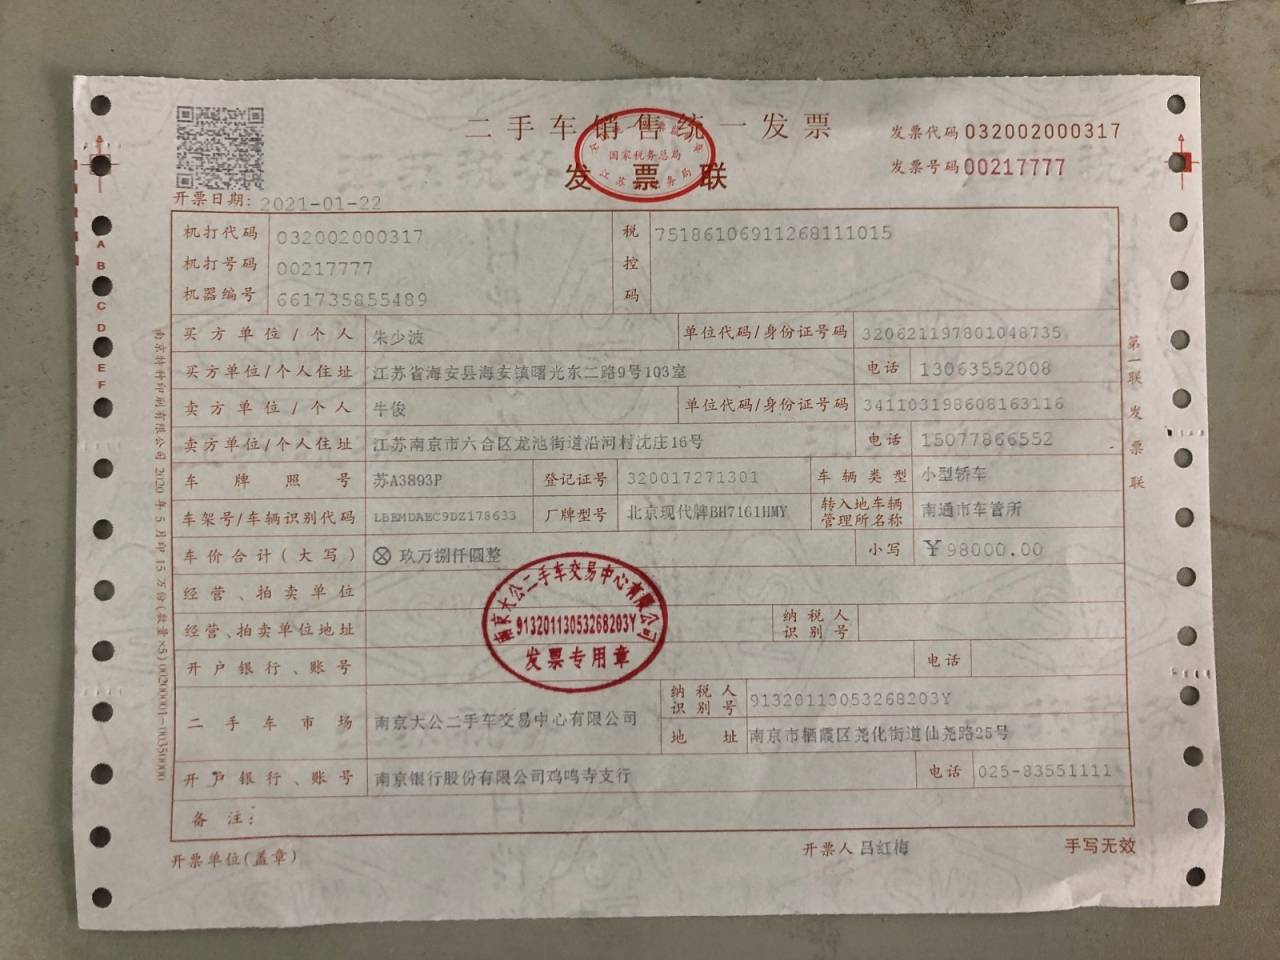 二手车销售统一发票
发票联
国家税务总局
江苏省税务局
发票代码 032002000317
发票号码 00217777
开票日期: 2021-01-22
机打代码 032002000317
机打号码 00217777
机器编号 661735855489
税控码 75186106911268111015
买方单位/个人 朱少波 单位代码/身份证号码 320621197801048735
买方单位/个人住址 江苏省海安县海安镇曙光东二路9号103室 电话 13063552008
卖方单位/个人 牛俊 单位代码/身份证号码 341103198608163116
卖方单位/个人住址 江苏南京市六合区龙池街道沿河村沈庄16号 电话 15077866552
车牌照号 苏A3893P 登记证号 320017271301 车辆类型 小型轿车
车架号/车辆识别代码 LBEMDAEC9DZ178633 厂牌型号 北京现代牌BH7161HMY 转入地车辆管理所名称 南通市车管所
车价合计(大写) ⊗ 玖万捌仟圆整 小写 ￥98000.00
经营、拍卖单位
经营、拍卖单位地址 纳税人识别号
开户银行、账号 电话
南京大公二手车交易中心有限公司
91320113053268203Y
发票专用章
二手车市场 南京大公二手车交易中心有限公司 纳税人识别号 91320113053268203Y
地址 南京市栖霞区尧化街道仙尧路25号
开户银行、账号 南京银行股份有限公司鸡鸣寺支行 电话 025-83551111
备注:
开票单位(盖章) 开票人 吕红梅 手写无效
第一联 发票联
A
B
C
D
E
F
2020年5月印15万份(数量×5)00200001-00350000